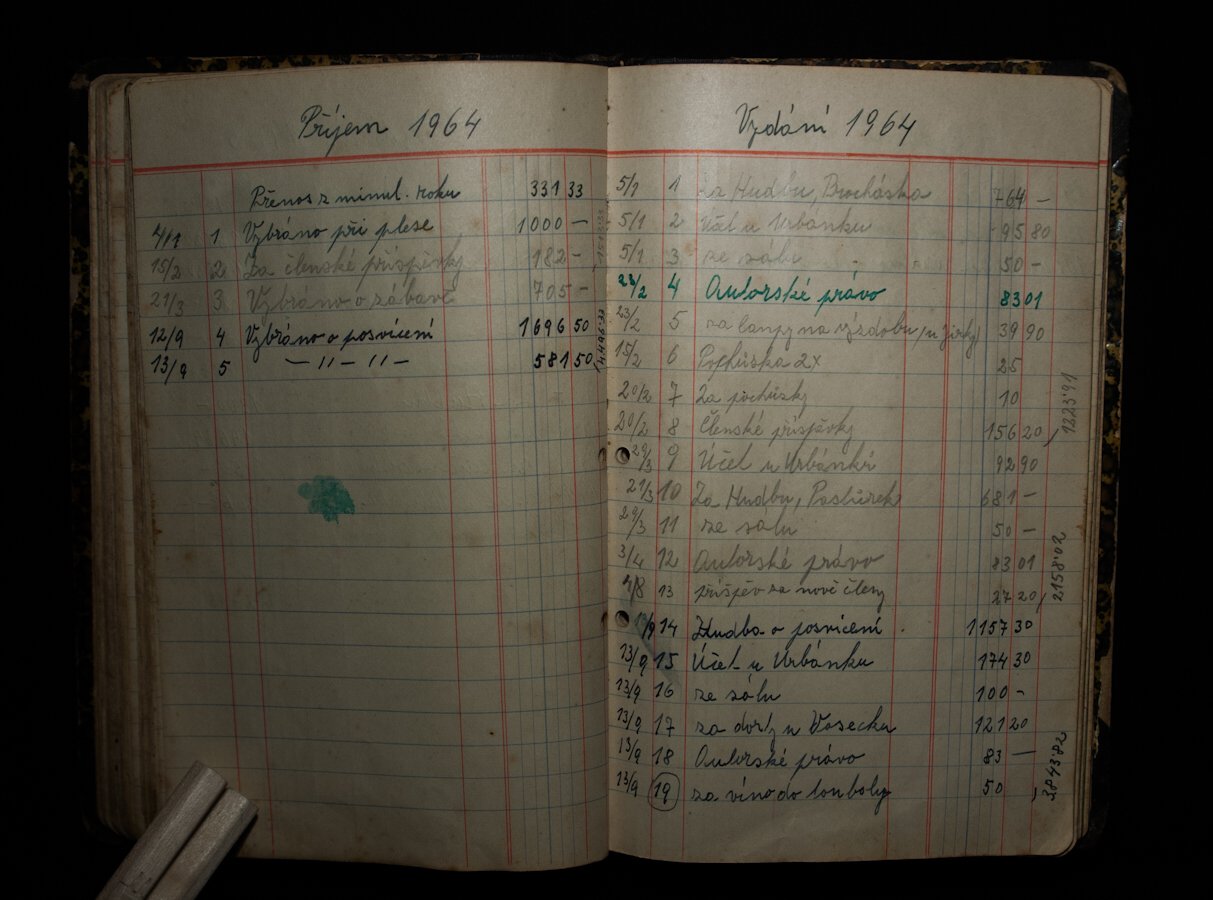 Příjem 1964
Přenos z minul. roku 331 33
4/1 1 Vybráno při plese 1000 —
15/2 2 Za členské příspěvky 182 —
21/3 3 Vybráno o zábavě 705 —
12/9 4 Vybráno o posvícení 1696 50
13/9 5 — 11 — 11 — 581 50
Vydání 1964
5/1 1 za Hudbu, Procháska 764 —
5/1 2 Účet u Urbánku 95 80
5/1 3 ze sálu 50 —
23/2 4 Autorské právo 83 01
23/2 5 za lampy na výzdobu 39 90
15/2 6 Pochůska 2x 25
20/2 7 Za pochůsky 10
20/2 8 Členské příspěvky 156 20, 1223'91
29/3 9 Účet u Urbánků 92 90
21/3 10 Za Hudbu, 681 —
29/3 11 ze sálu 50 —
3/4 12 Autorské právo 83 01
4/8 13 příspěv za nové členy 27 20, 2158'02
13/9 14 Hudba o posvícení 1157 30
13/9 15 Účet u Urbánku 174 30
13/9 16 ze sálu 100 -
13/9 17 za dorty u Vosecku 121 20
13/9 18 Autorské právo 83 —
13/9 19 za víno do tomboly 50, 3843'82